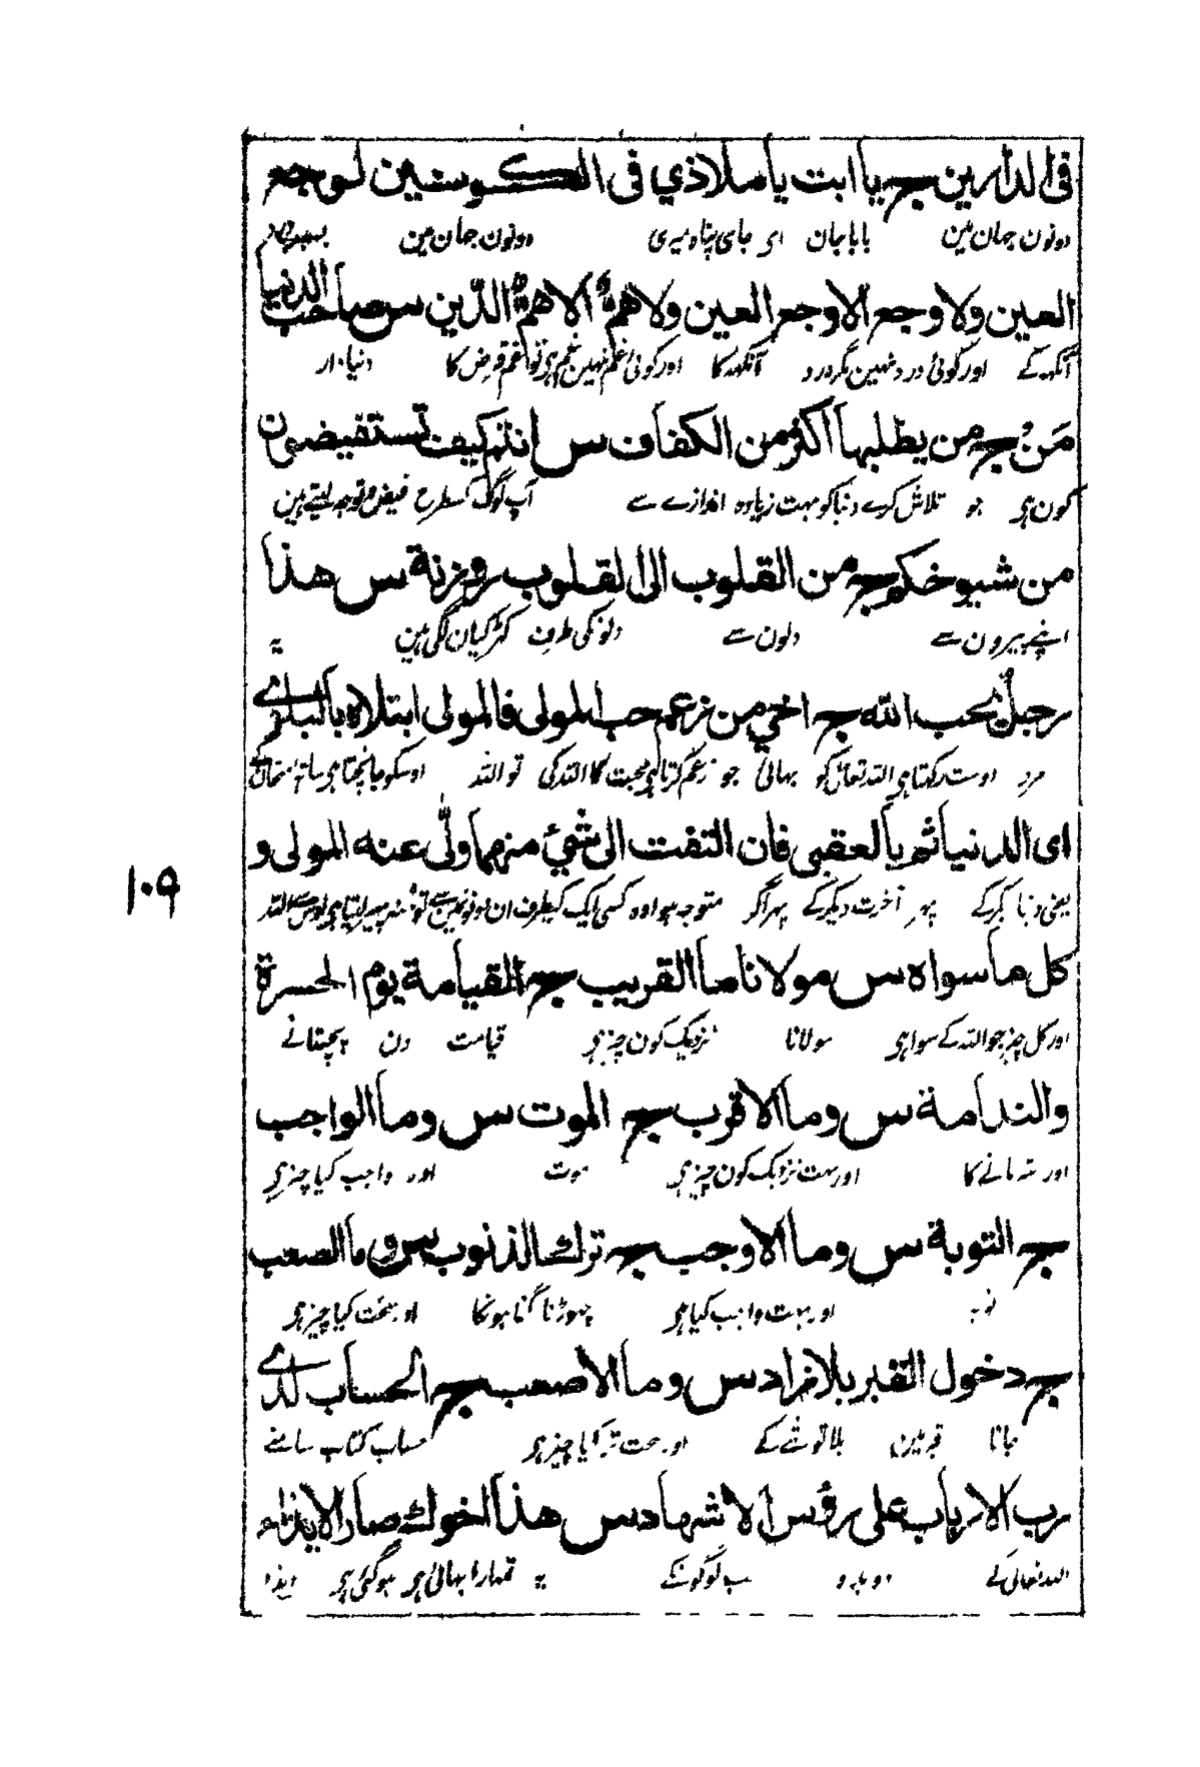 فی الدارین جـ یا ابت یا ملاذی فی الکونین لوجع
دونون جهان مین بابا جان ای جای پناه میری دونون جهان مین
العین ولا وجع الا وجع العین ولا همّ الا همّ الدّین س صاحب الدنیا
آنکهه کے اور کوئی درد نهین مگر درد آنکهه کا اور کوئی غم نهین غم ہی تو غم قرض کا دنیا دار
مَنْ جـ من یطلبها اکثر من الکفاف س انتم کیف تستفیضون
کون ہی جو تلاش کرے دنیا کو بهت زیاده اندازے سے آپ لوگ کسطرح فیض و توجه لیتے ہین
من شیوخکم جـ من القلوب الی القلوب روزنة س هذا
اپنے پیرون سے دلون سے دلونکی طرف کهڑکیان لگی ہین یه
رجل یحب الله جـ اخی من زعم حب المولی فالمولی ابتلاه بالبلاء
مرد دوست رکهتا ہی الله تعالی کو بهائی جو زعم کرتا ہی محبت کا الله کی تو الله اوسکو جانچتا ہی ساته
ای الدنیا ثم بالعقبی فان التفت الی شیٔ منهما ولّی عنه المولی و
یعنی دنیا دیکے پهر آخرت دیکے پهر اگر متوجه ہوا وه کسی ایک کیطرف ان دونومین سے تو منه پهیر لیتا ہی اوس سے الله
کل ما سواه س مولانا ما القریب جـ القیامة یوم الحسرة
اور کل چیز جو الله کے سوا ہی مولانا نزدیک کون چیز ہی قیامت دن پچتانے
والندامة س وما الاقرب جـ الموت س وما الواجب
اور شرمانے کا اور بهت نزدیک کون چیز ہی موت اور واجب کیا چیز ہی
جـ التوبة س وما الاوجب جـ ترك الذنوب س وما الصعب
توبه اور بهت واجب کیا ہی چهوڑنا گناہونکا اور سخت کیا چیز ہی
جـ دخول القبر بلا زاد س وما الاصعب جـ الحساب لدی
جانا قبر مین بلا توشے کے اور سخت تر کیا چیز ہی حساب کتاب سامنے
رب الارباب علی رؤس الاشهاد س هذا اخوك صار الایذاء
الله تعالی کے روبرو سب لوگونکے یه تمهارا بهائی ہی ہوگئی ہی ایذا
۱۰۹